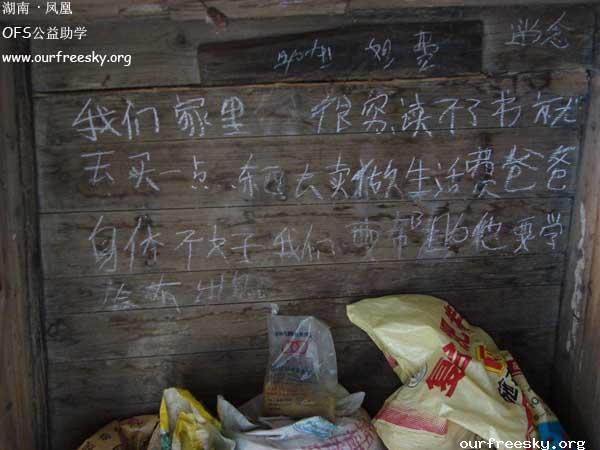 湖南 · 凤凰
OFS公益助学
www.ourfreesky.org
我们家里 很穷读不了书就
去买一点东西去卖做生活费爸爸
身体不好我们要帮助他要学
ourfreesky.org